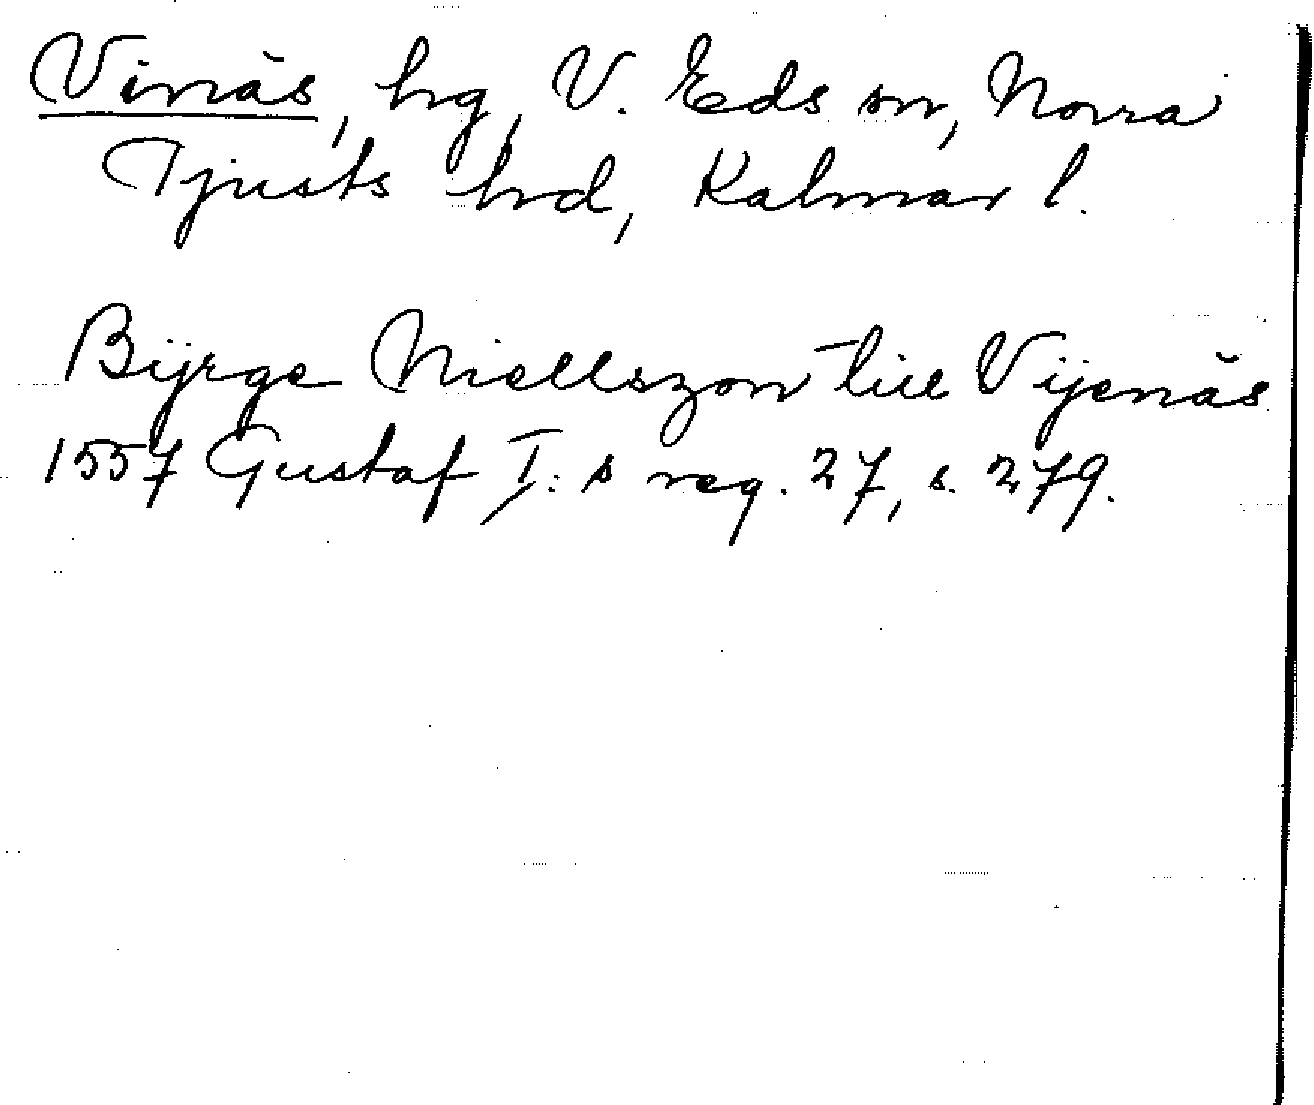 Vinäs, hg, V. Eds sn, Norra
Tjusts hrd, Kalmar l.
Bijrge Niellszon till Vijenäs
1557 Gustaf I:s reg. 27, s. 279.